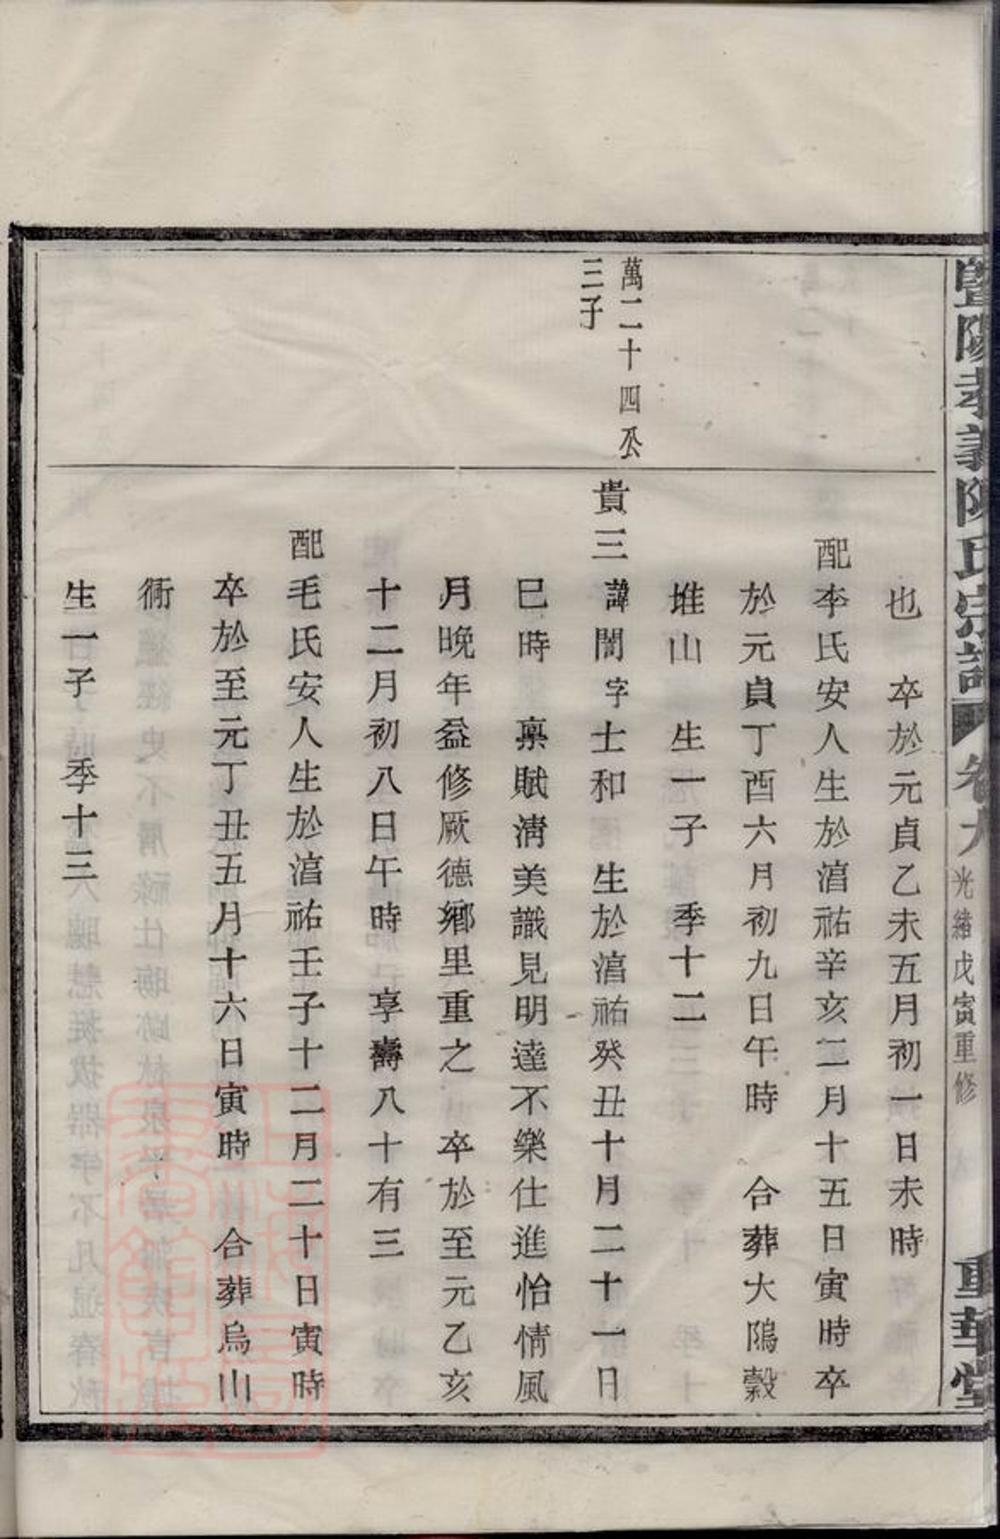 暨陽孝義陳氏宗譜 卷九 光緖戊寅重修 重華堂
也 卒於元貞乙未五月初一日未時
配李氏安人生於湻祐辛亥二月十五日寅時卒
於元貞丁酉六月初九日午時 合葬大隝穀
堆山 生一子 季十二
萬二十四公
三子
貴三諱誾字士和 生於湻祐癸丑十月二十一日
巳時 稟賦淸美識見明達不樂仕進怡情風
月晚年益修厥德鄉里重之 卒於至元乙亥
十二月初八日午時 享壽八十有三
配毛氏安人生於湻祐壬子十二月二十日寅時
卒於至元丁丑五月十六日寅時 合葬烏山
衕
生一子 季十三